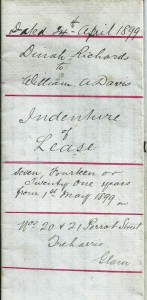 Dated 24th April 1899
Dinah Richards
to
William A Davis
Indenture
of
Lease
Seven, Fourteen or
Twenty One years
from 1st May 1899
Nos 20 & 21 Perrott Street
Treharris
Glam